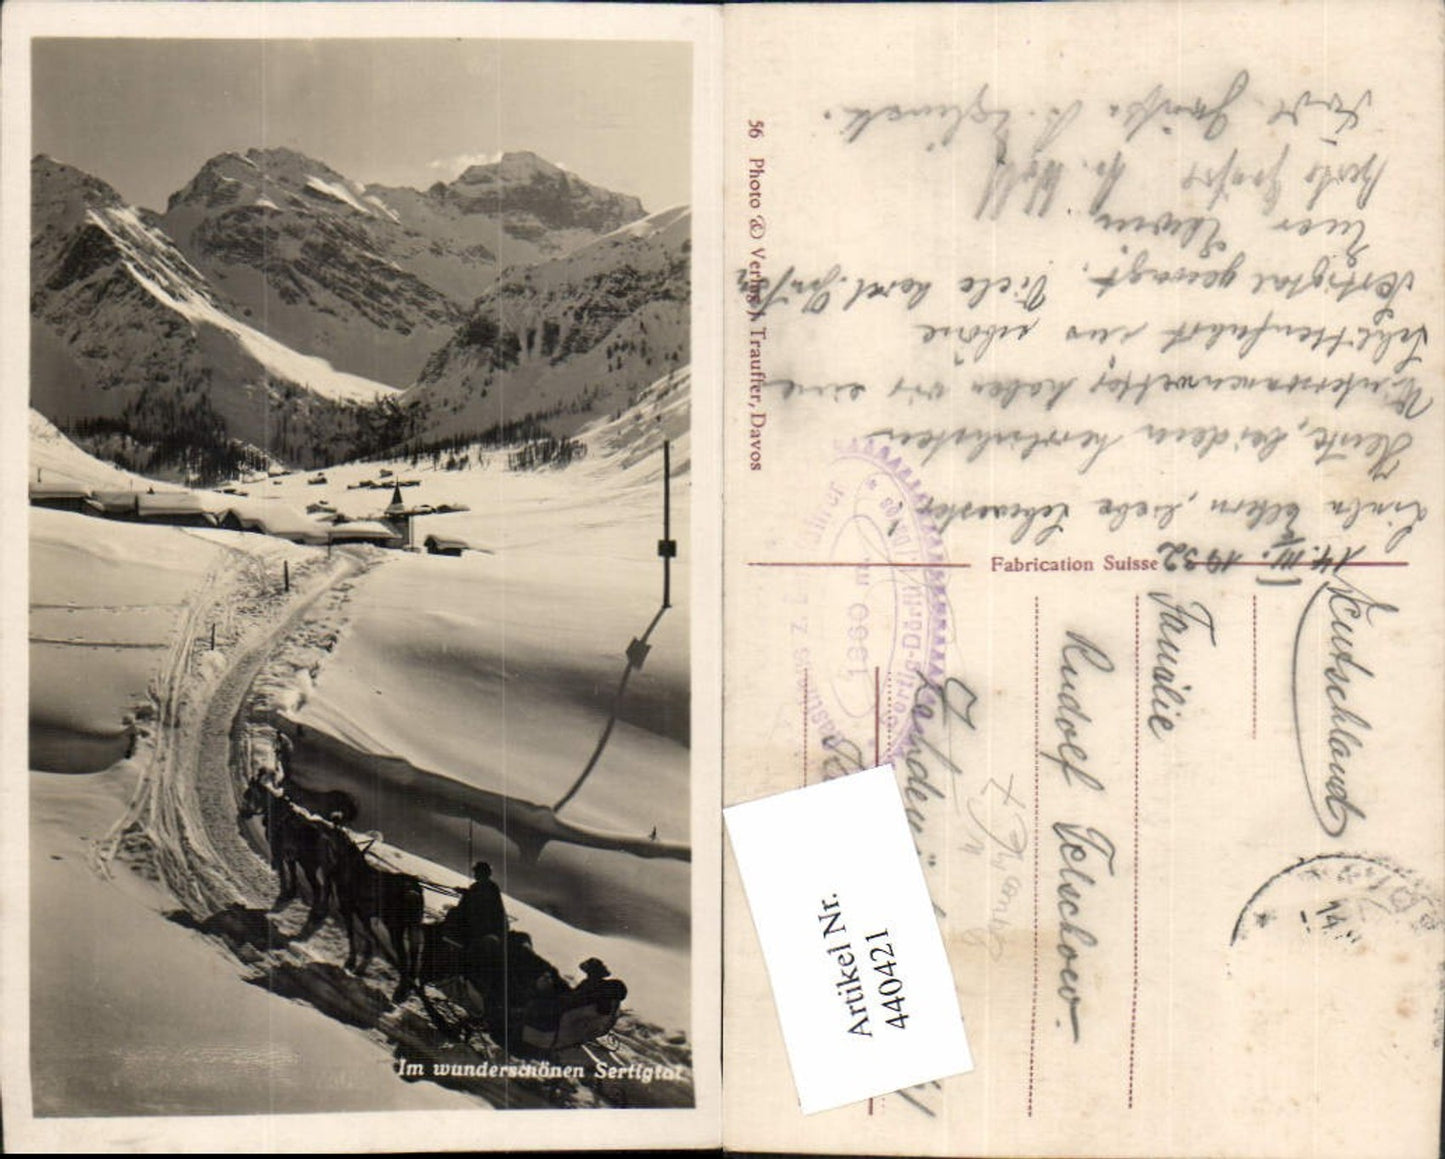 Im wunderschönen Sertigtal
56 Photo & Verlag J. Trauffer, Davos
Fabrication Suisse
14. III. 1932
Eltern, liebe Schwester
Heute, bei dem herrlichsten
Wintersonnenwetter haben wir eine
Schlittenfahrt ins schöne
Sertigtal gemacht. Viele herzl. Grüße
Euer Erwin
Beste Grüße
Grüße
Gasthaus z.
1860 m.
Sertig-Dörfli
Deutschland
Familie
Rudolf Telschow.
14
Artikel Nr.
440421